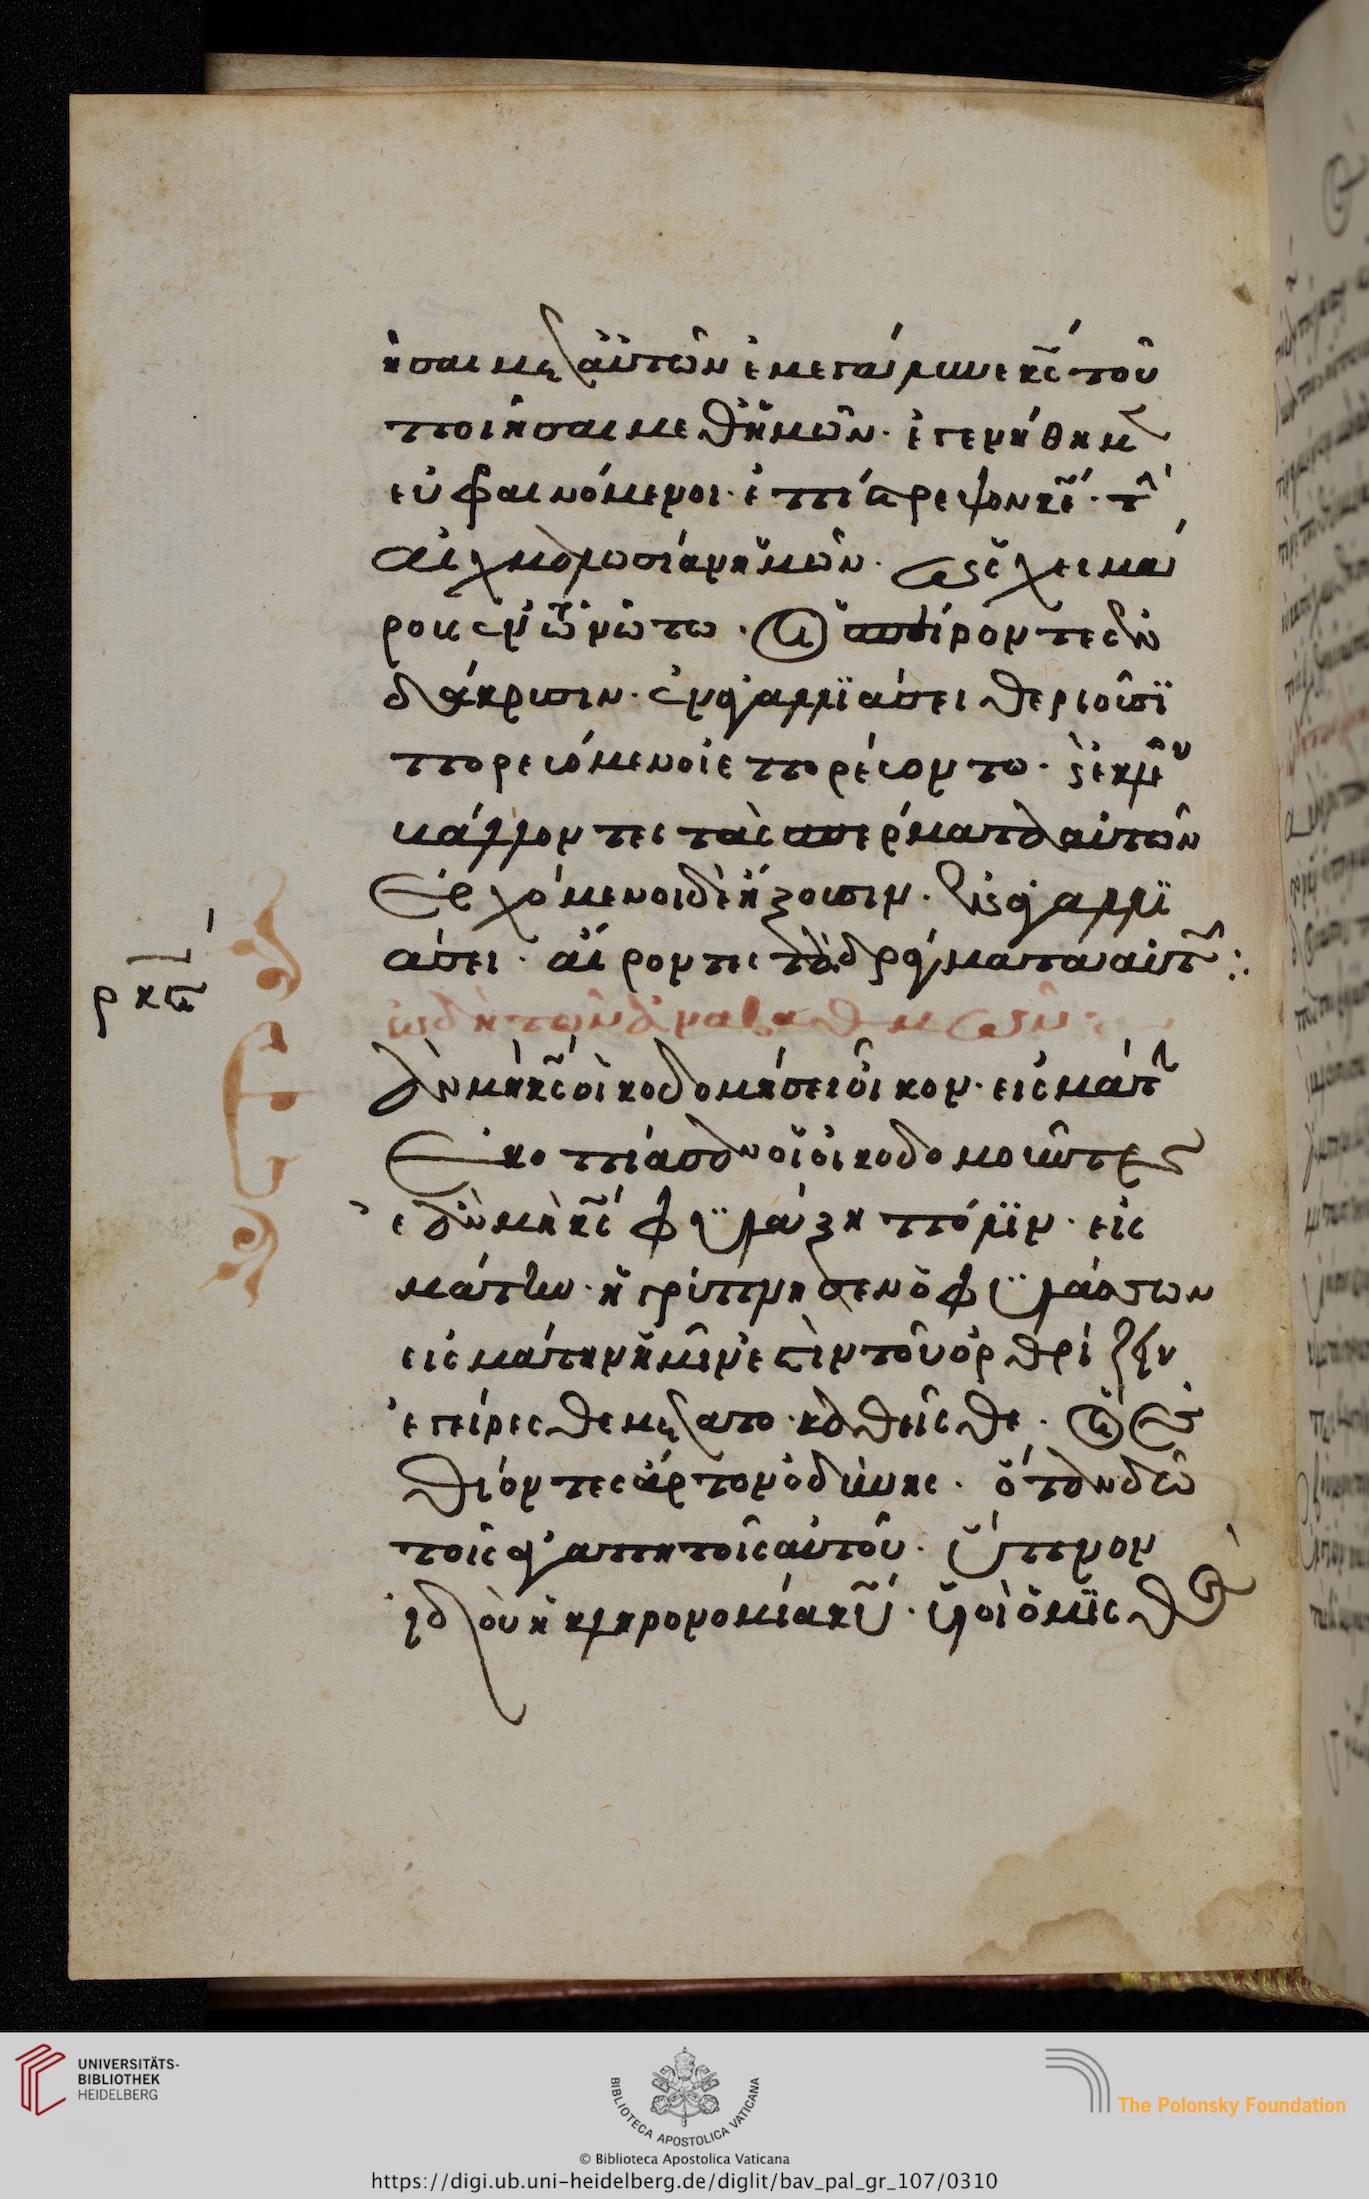 ῆσαι μετ αὐτῶν ἐμεγάλυνε κς τοῦ
ποιῆσαι μεθ ἡμῶν· ἐγενήθημ
ευφραινόμενοι· ἐπίστρεψον κε· τὴν
αἰχμαλωσίαν ἡμῶν· ὡς χειμά
ρους ἐν τῶ νώτω· οἱ σπείροντες ἐν
δάκρυσιν· ἐν ἀγαλλϊάσει θεριοῦσϊ
πορευόμενοι ἐπορέυοντο· καὶ ἔκλεον
βάλλοντες τὰ σπέρματα αὐτῶν
Ἐρχόμενοι δὲ ἥξουσιν· ἐν ἀγαλλϊ
άσει· αἴροντες τὰ δράγματα αὐτῶν:
ρκϛ
ὠδὴ τῶν ἀναβαθμῶν·
Ἐὰν μὴ κς οἰκοδομήσει οἶκον· εἰς μάτην
Ἐκοπίασαν οἱ οἰκοδομοῦντες
ἐὰν μὴ κς φϋλάξη πόλϊν· εἰς
μάτην· ἠγρύπνησεν ὁ φϋλάσσων
εἰς μάτην ἡμῖν ἐστὶν τοῦ ὀρθρίζειν
ἐγείρεσθε μετα το καθεῖσθε· οἱ ἐσ
θίοντες ἄρτον ὀδύνης· ὅταν δῶ
τοῖς ἀγαπητοῖς αὐτοῦ· ὕπνον
ἰδοὺ ἡ κληρονομία κυ· ϋἱοὶ ὁ μϊσθὸς
UNIVERSITÄTS-
BIBLIOTHEK
HEIDELBERG
BIBLIOTECA APOSTOLICA VATICANA
The Polonsky Foundation
© Biblioteca Apostolica Vaticana
https://digi.ub.uni-heidelberg.de/diglit/bav_pal_gr_107/0310